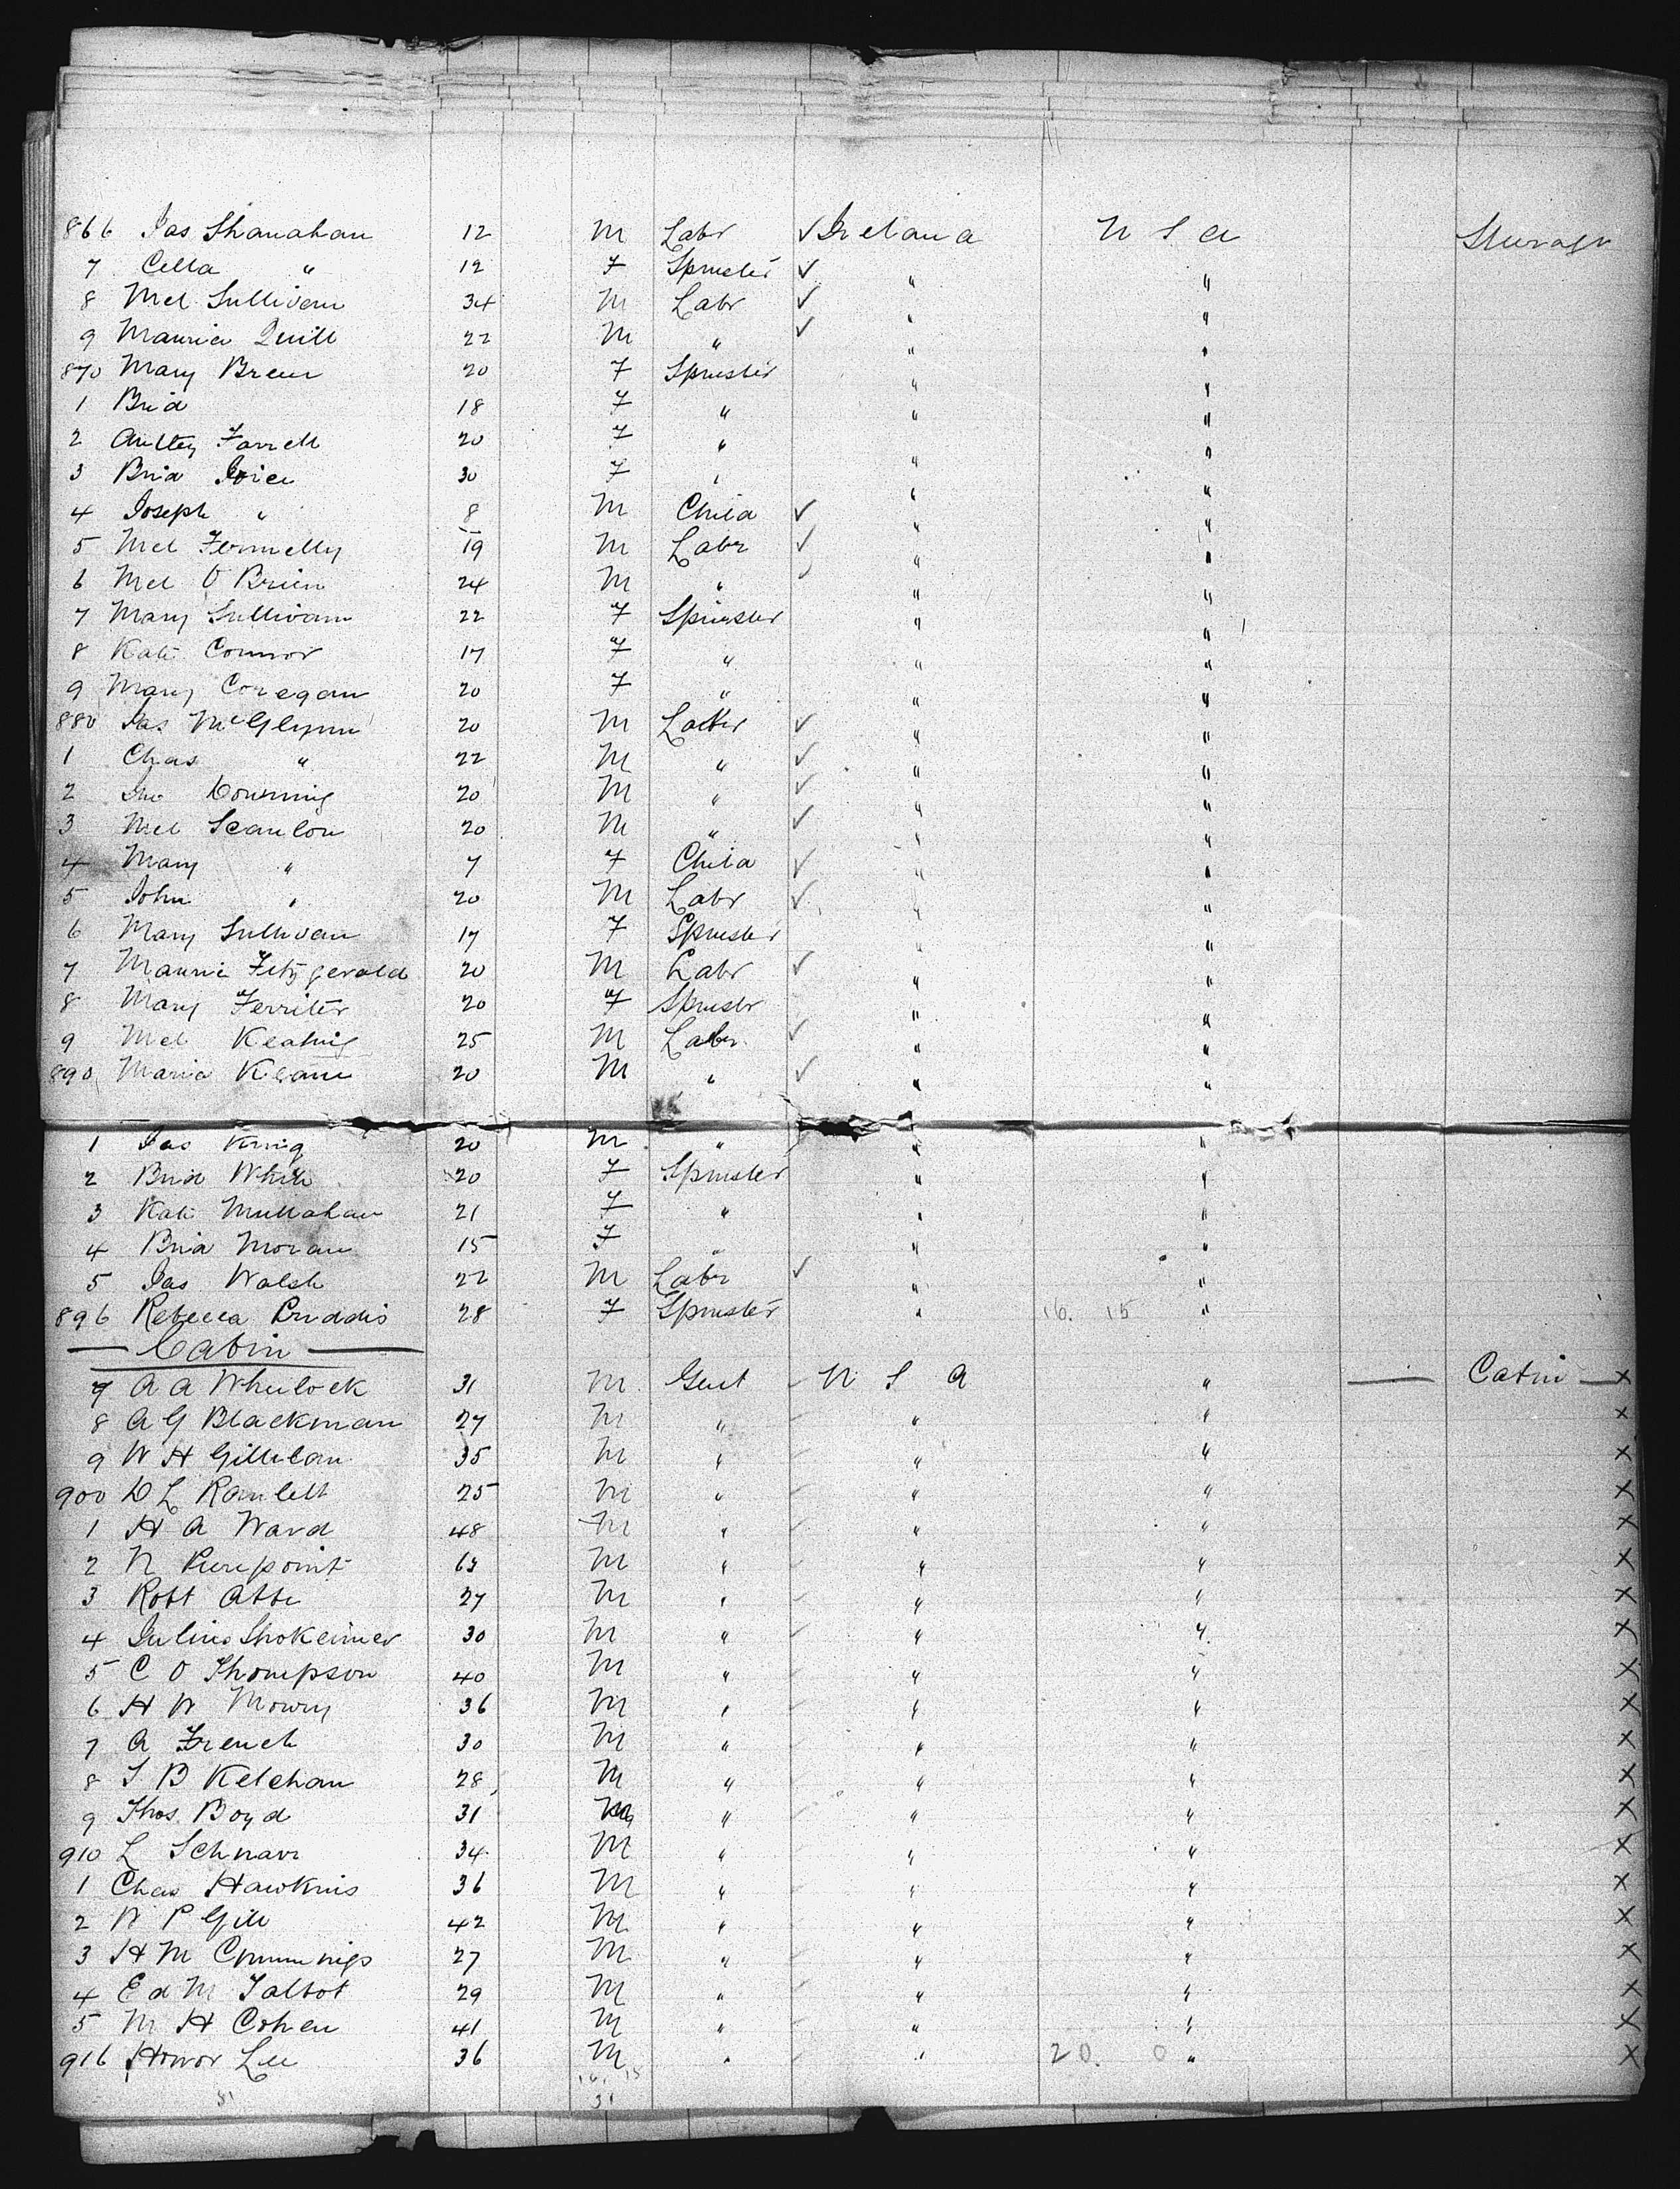 866 Jas Shanahan 12 M Labr ✓ Ireland U S A Steerage
7 Cella " 12 F Spinster ✓ " "
8 Mcl Sullivan 34 M Labr ✓ " "
9 Maurice Quill 22 M " ✓ " "
870 Mary Breen 20 F Spinster " "
1 Brid 18 F " " "
2 Farrell 20 F " " "
3 Brid Joice 30 F " " "
4 Joseph " 8 M Child ✓ " "
5 Mcl Fennelly 19 M Labr ✓ " "
6 Mcl O Brien 24 M " ✓ " "
7 Mary Sullivan 22 F Spinster " "
8 Kate Connor 17 F " " "
9 Mary Coregan 20 F " " "
880 Jas McGlynn 20 M Labr ✓ " "
1 Chas " 22 M " ✓ " "
2 Jno 20 M " ✓ " "
3 Mcl Scanlon 20 M " ✓ " "
4 Mary " 7 F Child ✓ " "
5 John " 20 M Labr ✓ " "
6 Mary Sullivan 17 F Spinster " "
7 Maurice Fitzgerald 20 M Labr ✓ " "
8 Mary Ferriter 20 F Spinster " "
9 Mcl Keating 25 M Labr ✓ " "
890 Keane 20 M " ✓ " "
1 Jas King 20 M " " "
2 Brid White 20 F Spinster " "
3 Kate Mullahan 21 F " " "
4 Brid Moran 15 F " " "
5 Jas Walsh 22 M Labr ✓ " "
896 Rebecca Priddis 28 F Spinster " 16. 15 "
Cabin
7 A A Wheelock 31 M Gent U S A " — Cabin — X
8 A G Blackman 27 M " " " X
9 W H Gillilan 35 M " " " X
900 D L Ranlett 25 M " " " X
1 H A Ward 48 M " " " X
2 N Pierpoint 63 M " " " X
3 Robt Abbe 27 M " " " X
4 Julius Shokeimer 30 M " " " X
5 C O Thompson 40 M " " " X
6 H W Mowry 36 M " " " X
7 A French 30 M " " " X
8 S B Kelehan 28 M " " " X
9 Thos. Boyd 31 M " " " X
910 L Schnarr 34 M " " " X
1 Chas Hawkins 36 M " " " X
2 W P Gill 42 M " " " X
3 H M Cummings 27 M " " " X
4 Ed M Talbot 29 M " " " X
5 M H Cohen 41 M " " " X
916 Honor Lee 36 M " " 20. 0 " X
16. 15
31